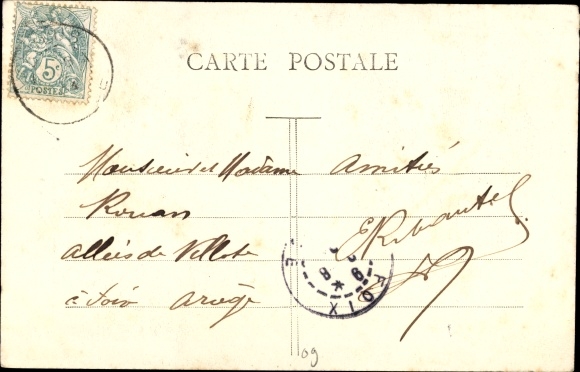 5c
POSTES
CARTE POSTALE
Monsieur et Madame
Rouan
allées de Villote
à Foix Ariège
Amitiés
FOIX
09